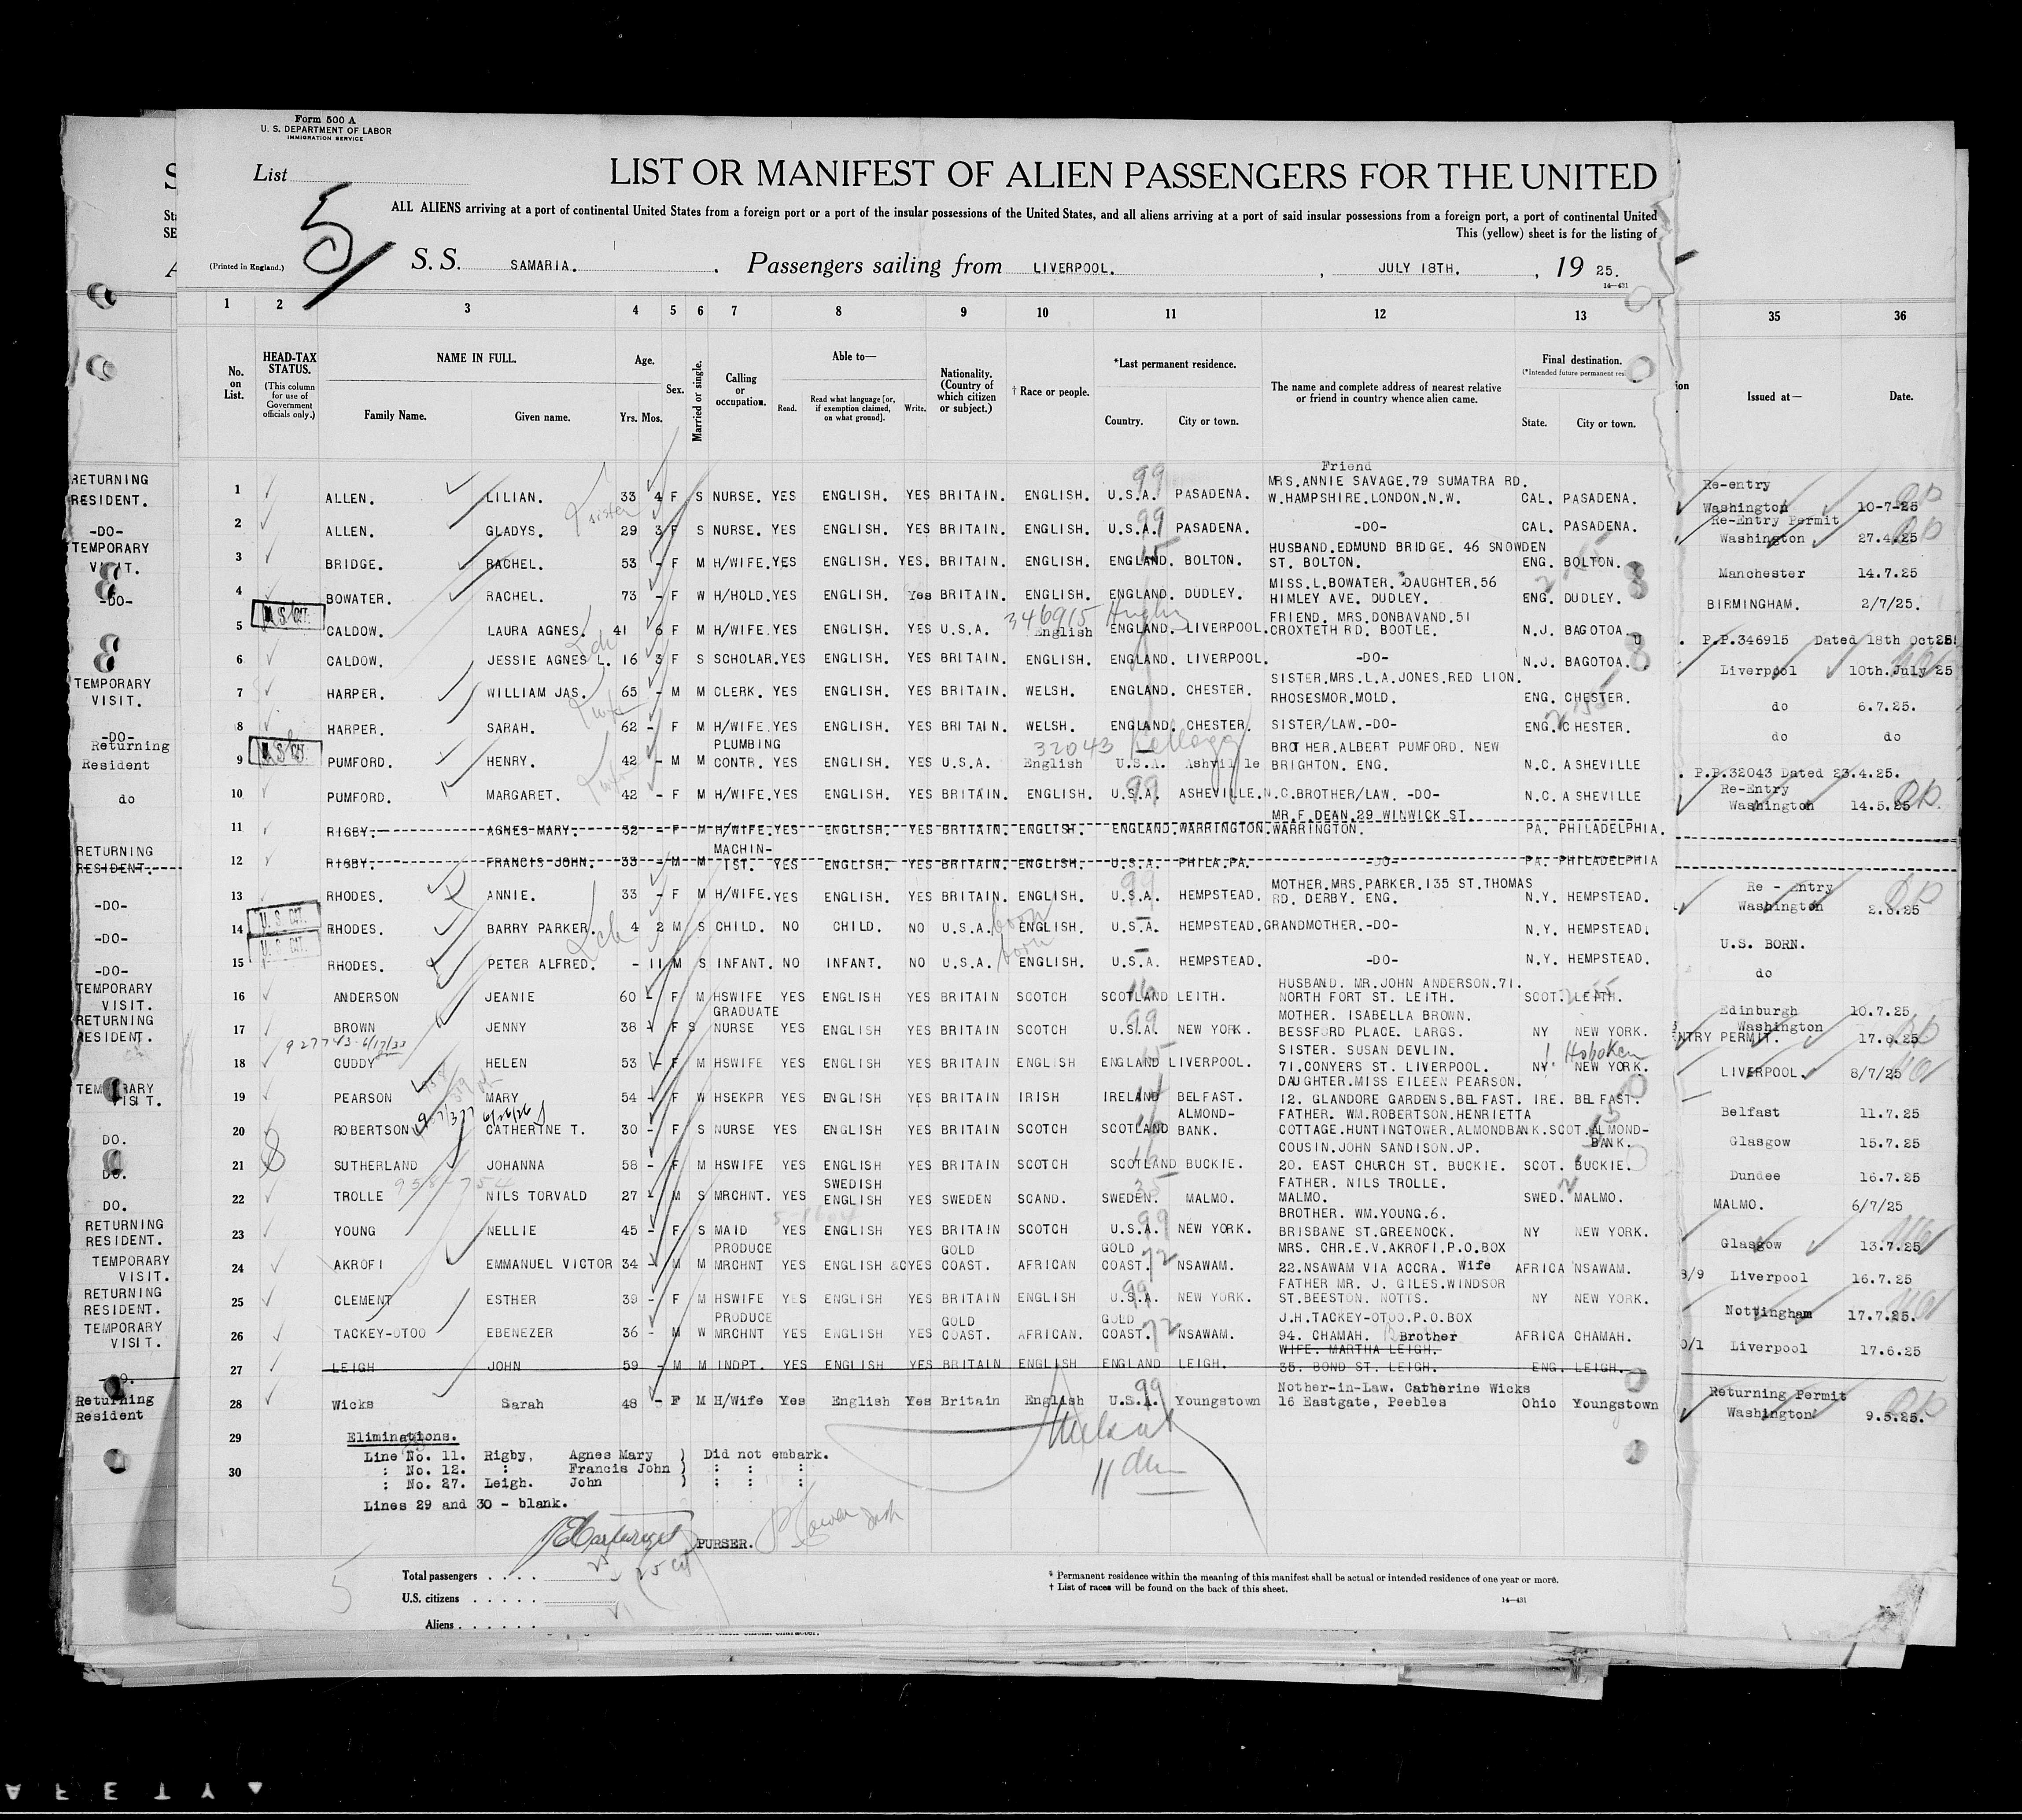 Form 500 A
U. S. DEPARTMENT OF LABOR
IMMIGRATION SERVICE
List
5
LIST OR MANIFEST OF ALIEN PASSENGERS FOR THE UNITED
ALL ALIENS arriving at a port of continental United States from a foreign port or a port of the insular possessions of the United States, and all aliens arriving at a port of said insular possessions from a foreign port, a port of continental United
This (yellow) sheet is for the listing of
(Printed in England.) S. S. SAMARIA. . Passengers sailing from LIVERPOOL. , JULY 18TH. , 19 25.
14—431
1 2 3 4 5 6 7 8 9 10 11 12 13 35 36
No. on List. HEAD-TAX STATUS. (This column for use of Government officials only.) NAME IN FULL. Family Name. Given name. Age. Yrs. Mos. Sex. Married or single. Calling or occupation. Able to— Read. Read what language [or, if exemption claimed, on what ground]. Write. Nationality. (Country of which citizen or subject.) † Race or people. *Last permanent residence. Country. City or town. The name and complete address of nearest relative or friend in country whence alien came. Final destination. (*Intended future permanent State. City or town. Issued at— Date.
RETURNING RESIDENT. 1 ALLEN. LILIAN. 33 4 F S NURSE. YES ENGLISH. YES BRITAIN. ENGLISH. U.S.A. 99 PASADENA. Friend MRS.ANNIE SAVAGE.79 SUMATRA RD. W.HAMPSHIRE.LONDON.N.W. CAL. PASADENA. Re-entry Washington 10-7-25
-DO- 2 ALLEN. GLADYS. sister 29 3 F S NURSE. YES ENGLISH. YES BRITAIN. ENGLISH. U.S.A. 99 PASADENA. -DO- CAL. PASADENA. Re-Entry Permit Washington 27.4.25
TEMPORARY VISIT. 3 BRIDGE. RACHEL. 53 - F M H/WIFE. YES ENGLISH. YES. BRITAIN. ENGLISH. ENGLAND. 15 BOLTON. HUSBAND.EDMUND BRIDGE. 46 SNOWDEN ST. BOLTON. ENG. BOLTON. Manchester 14.7.25
-DO- 4 BOWATER. RACHEL. 73 - F W H/HOLD. YES ENGLISH. Yes BRITAIN. ENGLISH. ENGLAND. DUDLEY. MISS.L.BOWATER. DAUGHTER.56 HIMLEY AVE. DUDLEY. ENG. DUDLEY. BIRMINGHAM. 2/7/25.
5 CALDOW. LAURA AGNES. 41 6 F M H/WIFE. YES ENGLISH. YES U.S.A. 346915 English ENGLAND. LIVERPOOL. FRIEND. MRS.DONBAVAND.51 CROXTETH RD. BOOTLE. N.J. BAGOTOA. P.P.346915 Dated 18th Oct25
6 CALDOW. JESSIE AGNES L. 16 3 F S SCHOLAR. YES ENGLISH. YES BRITAIN. ENGLISH. ENGLAND. LIVERPOOL. -DO- N.J. BAGOTOA. Liverpool 10th.July 25
TEMPORARY VISIT. 7 HARPER. WILLIAM JAS. 65 - M M CLERK. YES ENGLISH. YES BRITAIN. WELSH. ENGLAND. CHESTER. SISTER.MRS.L.A.JONES.RED LION. RHOSESMOR.MOLD. ENG. CHESTER. do 6.7.25.
-DO- 8 HARPER. SARAH. 62 - F M H/WIFE. YES ENGLISH. YES BRITAIN. WELSH. ENGLAND. CHESTER. SISTER/LAW.-DO- ENG. CHESTER. do do
Returning Resident 9 PUMFORD. HENRY. 42 - M M PLUMBING CONTR. YES ENGLISH. YES U.S.A. 32043 Kellogg English U.S.A. Ashville BROTHER.ALBERT PUMFORD. NEW BRIGHTON. ENG. N.C. ASHEVILLE P.P.32043 Dated 23.4.25.
do 10 PUMFORD. MARGARET. 42 - F M H/WIFE. YES ENGLISH. YES BRITAIN. ENGLISH. U.S.A. 99 ASHEVILLE.N.C. BROTHER/LAW. -DO- N.C. ASHEVILLE Re-Entry Washington 14.5.25
11 RIGBY. AGNES MARY. 32 - F M H/WIFE. YES ENGLISH. YES BRITAIN. ENGLISH. ENGLAND. WARRINGTON. MR.F.DEAN.29 WINWICK ST. WARRINGTON. PA. PHILADELPHIA.
RETURNING RESIDENT. 12 RIGBY. FRANCIS JOHN. 33 - M M MACHIN-IST. YES ENGLISH. YES BRITAIN. ENGLISH. U.S.A. PHILA.PA. -DO- PA. PHILADELPHIA
-DO- 13 RHODES. ANNIE. 33 - F M H/WIFE. YES ENGLISH. YES BRITAIN. ENGLISH. U.S.A. 99 HEMPSTEAD. MOTHER.MRS.PARKER.135 ST.THOMAS RD. DERBY. ENG. N.Y. HEMPSTEAD. Re - Entry Washington 2.6.25
-DO- U. S. CIT. 14 RHODES. BARRY PARKER. 4 2 M S CHILD. NO CHILD. NO U.S.A. born ENGLISH. U.S.A. HEMPSTEAD. GRANDMOTHER.-DO- N.Y. HEMPSTEAD. U.S. BORN.
-DO- U. S. CIT. 15 RHODES. PETER ALFRED. - 11 M S INFANT. NO INFANT. NO U.S.A. born ENGLISH. U.S.A. HEMPSTEAD. -DO- N.Y. HEMPSTEAD. do
TEMPORARY VISIT. 16 ANDERSON JEANIE 60 - F M HSWIFE YES ENGLISH YES BRITAIN SCOTCH SCOTLAND LEITH. HUSBAND. MR.JOHN ANDERSON.71. NORTH FORT ST. LEITH. SCOT. LEITH. Edinburgh 10.7.25
RETURNING RESIDENT. 17 BROWN JENNY 38 - F S GRADUATE NURSE YES ENGLISH YES BRITAIN SCOTCH U.S.A. 99 NEW YORK. MOTHER. ISABELLA BROWN. BESSFORD PLACE. LARGS. NY NEW YORK. Washington NTRY PERMIT. 17.6.25
18 CUDDY HELEN 53 - F M HSWIFE YES ENGLISH YES BRITAIN ENGLISH ENGLAND 15 LIVERPOOL. SISTER. SUSAN DEVLIN. 71.CONYERS ST. LIVERPOOL. NY NEW YORK. Hoboken LIVERPOOL. 8/7/25
TEMPORARY VISIT. 19 PEARSON MARY 54 - F W HSEKPR YES ENGLISH YES BRITAIN IRISH IRELAND BELFAST. DAUGHTER.MISS EILEEN PEARSON. 12. GLANDORE GARDENS.BELFAST. IRE. BELFAST. Belfast 11.7.25
DO. 20 ROBERTSON CATHERINE T. 30 - F S NURSE YES ENGLISH YES BRITAIN SCOTCH SCOTLAND ALMOND-BANK. FATHER. WM.ROBERTSON.HENRIETTA COTTAGE.HUNTINGTOWER.ALMONDBANK. SCOT. ALMOND-BANK. Glasgow 15.7.25
DO. 21 SUTHERLAND JOHANNA 58 - F M HSWIFE YES ENGLISH YES BRITAIN SCOTCH SCOTLAND BUCKIE. COUSIN.JOHN SANDISON.JP. 20. EAST CHURCH ST. BUCKIE. SCOT. BUCKIE. Dundee 16.7.25
DO. 22 TROLLE NILS TORVALD 27 - M S MRCHNT. YES SWEDISH ENGLISH YES SWEDEN SCAND. SWEDEN. MALMO. FATHER. NILS TROLLE. MALMO. SWED. MALMO. MALMO. 6/7/25
RETURNING RESIDENT. 23 YOUNG NELLIE 45 - F S MAID YES ENGLISH YES BRITAIN SCOTCH U.S.A. 99 NEW YORK. BROTHER. WM.YOUNG.6. BRISBANE ST.GREENOCK. NY NEW YORK. Glasgow 13.7.25
TEMPORARY VISIT. 24 AKROFI EMMANUEL VICTOR 34 - M M PRODUCE MRCHNT YES ENGLISH &C YES GOLD COAST. AFRICAN GOLD COAST. 72 NSAWAM. MRS. CHR.E.V.AKROFI.P.O.BOX 22.NSAWAM VIA ACCRA. Wife AFRICA NSAWAM. 8/9 Liverpool 16.7.25
RETURNING RESIDENT. 25 CLEMENT ESTHER 39 - F M HSWIFE YES ENGLISH YES BRITAIN ENGLISH U.S.A. 99 NEW YORK. FATHER MR. J. GILES.WINDSOR ST.BEESTON. NOTTS. NY NEW YORK. Nottingham 17.7.25.
TEMPORARY VISIT. 26 TACKEY-OTOO EBENEZER 36 - M W PRODUCE MRCHNT YES ENGLISH YES GOLD COAST. AFRICAN. GOLD COAST. 72 NSAWAM. J.H.TACKEY-OTOO.P.O.BOX 94. CHAMAH. Brother AFRICA CHAMAH. 0/1 Liverpool 17.6.25
DO. 27 LEIGH JOHN 59 - M M INDPT. YES ENGLISH YES BRITAIN ENGLISH ENGLAND LEIGH. WIFE. MARTHA LEIGH. 35. BOND ST. LEIGH. ENG. LEIGH.
Returning Resident 28 Wicks Sarah 48 - F M H/Wife Yes English Yes Britain English U.S.A. 99 Youngstown Nother-in-Law. Catherine Wicks 16 Eastgate, Peebles Ohio Youngstown Returning Permit Washington 9.5.25.
29 Eliminations.
Line No. 11. Rigby, Agnes Mary ) Did not embark.
30 : No. 12. : Francis John ) : : :
: No. 27. Leigh. John ) : : :
Lines 29 and 30 - blank.
PURSER.
Total passengers . . . .
U.S. citizens . . . . .
Aliens . . . . . .
5
* Permanent residence within the meaning of this manifest shall be actual or intended residence of one year or more.
† List of races will be found on the back of this sheet.
14—431